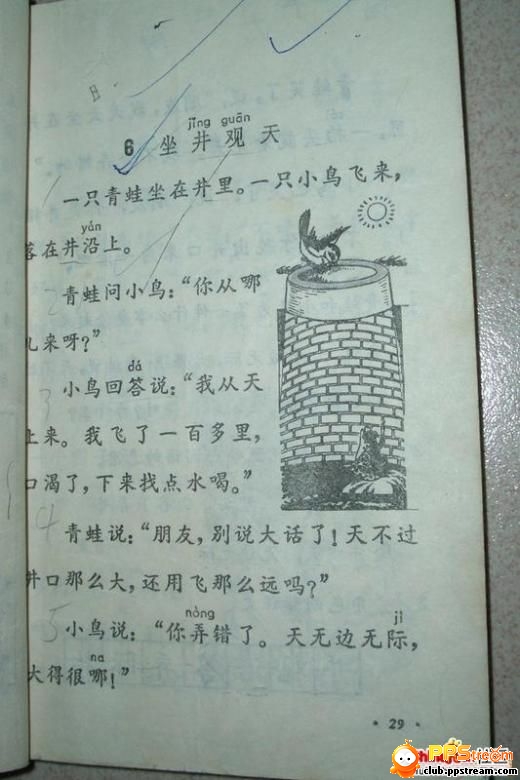 jǐng guān
6 坐井观天
一只青蛙坐在井里。一只小鸟飞来，
yán
落在井沿上。
青蛙问小鸟：“你从哪
儿来呀？”
dá
小鸟回答说：“我从天
上来。我飞了一百多里，
口渴了，下来找点水喝。”
青蛙说：“朋友，别说大话了！天不过
井口那么大，还用飞那么远吗？”
nòng jì
小鸟说：“你弄错了。天无边无际，
na
大得很哪！”
· 29 ·
PPStream
club.ppstream.com